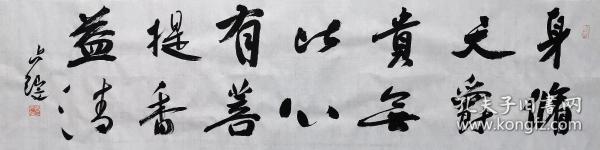 身備
天爵
貴無
比心
有菩
提香
益清
孔夫子旧书网
www.kongfz.com